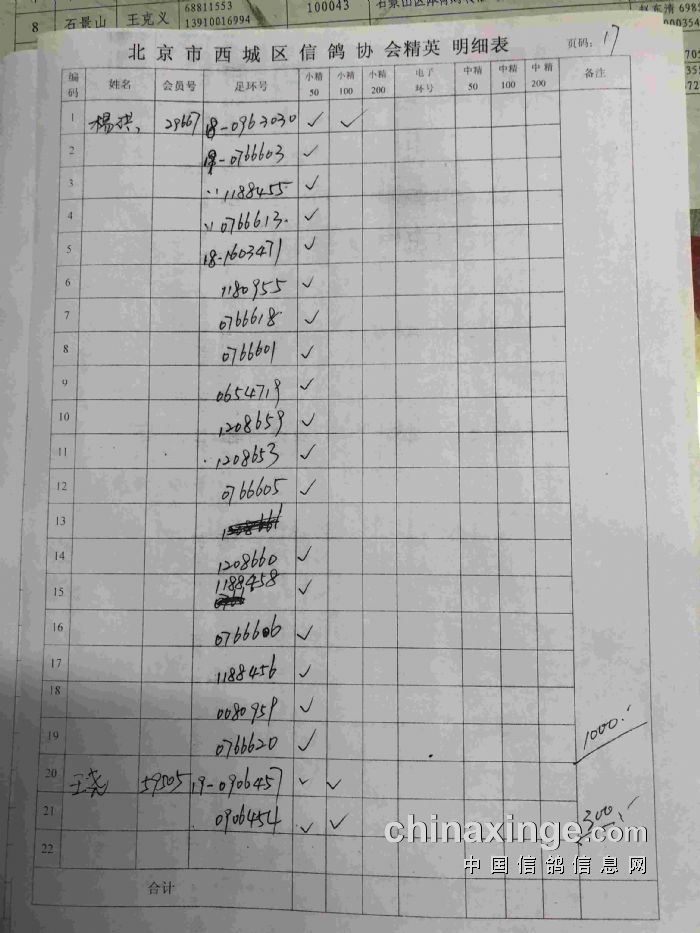 68811553 100043
8 石景山 王克义 13910016994 赵东清
北京市西城区信鸽协会精英 明细表 页码：17
编码 姓名 会员号 足环号 小精50 小精100 小精200 电子环号 中精50 中精100 中精200 备注
1 杨洪 29667 18-0963030 ✓ ✓
2 18-0766603 ✓
3 〃 1188455 ✓
4 〃 0766613 ✓
5 18-1603471 ✓
6 1180955 ✓
7 0766618 ✓
8 0766601 ✓
9 0654719 ✓
10 1208659 ✓
11 1208653 ✓
12 0766605 ✓
13
14 1208660 ✓
15 1188458 ✓
16 0766606 ✓
17 1188456 ✓
18 0080959 ✓
19 0766620 ✓ 1000.-
20 王尧 59505 19-0906457 ✓ ✓
21 0906454 ✓ ✓ 300.-
22
合计
chinaxinge.com
中国信鸽信息网